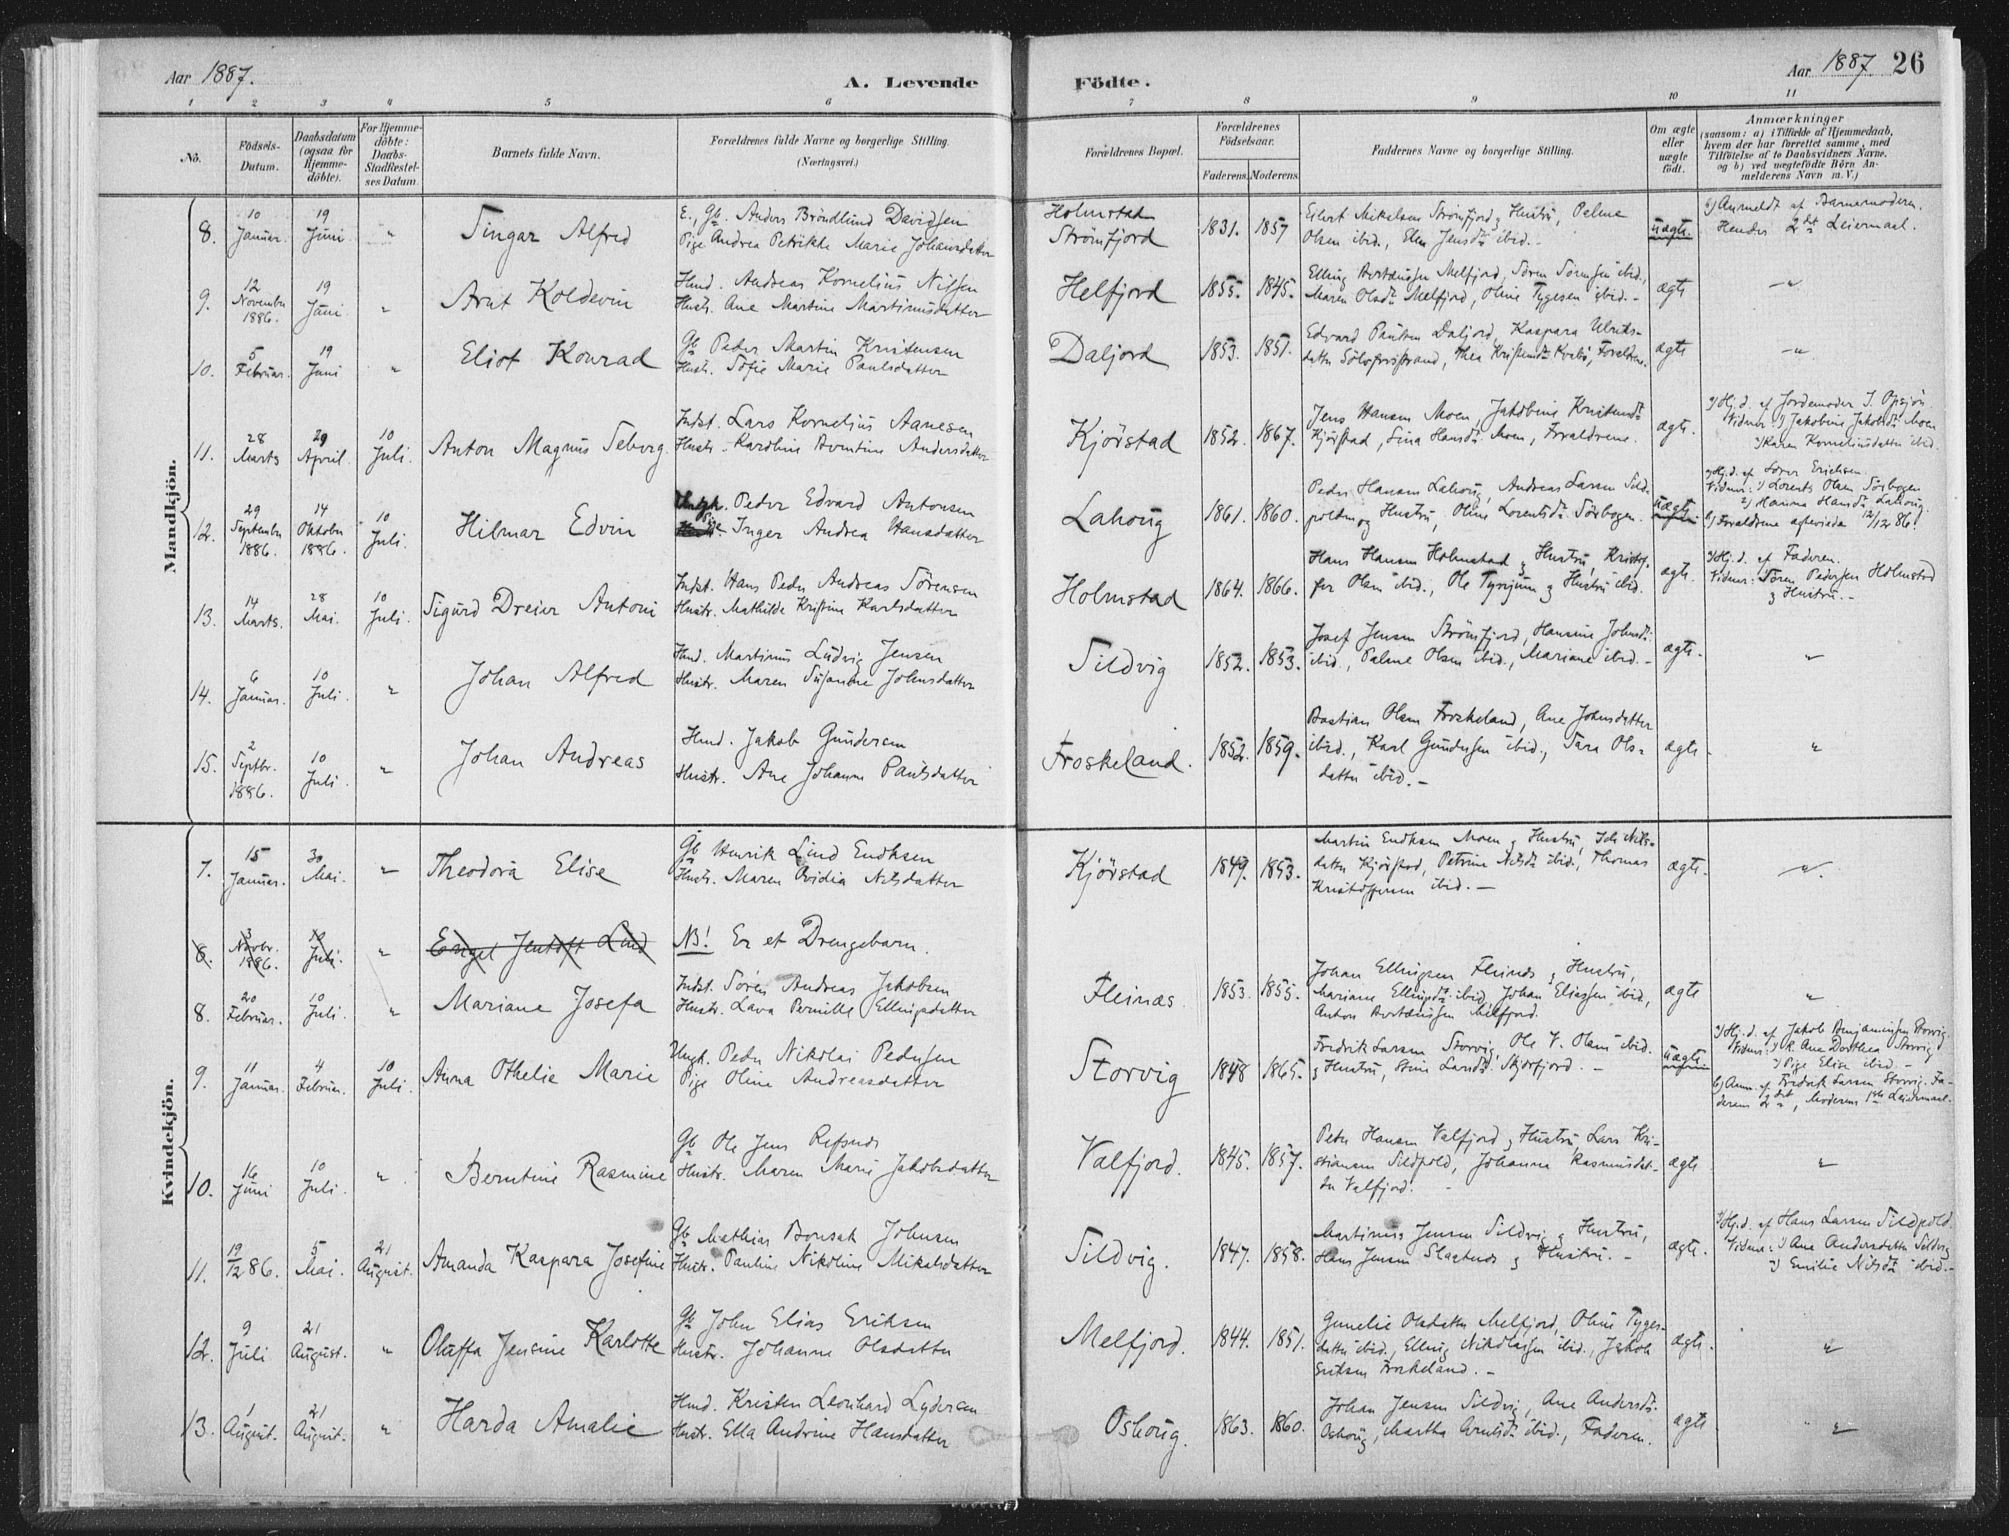 Aar 1887.
A. Levende
Födte.
Aar 1887. 26
1 2 3 4 5 6 7 8 9 10 11
No.
Födsels-Datum.
Daabsdatum (ogsaa for Hjemme-döbte).
For Hjemme-döbte: Daabs-Stadfestel-ses Datum.
Barnets fulde Navn.
Forældrenes fulde Navne og borgerlige Stilling.
(Næringsvei.)
Forældrenes Bopæl.
Forældrenes Födselsaar.
Faderens. Moderens.
Faddernes Navne og borgerlige Stilling.
Om ægte eller uægte födt.
Anmærkninger
(saasom: a) i Tilfælde af Hjemmedaab,
hvem der har forrettet samme, med
Tilföielse af to Daabsvidners Navne,
og b) ved uægtefödte Börn An-
melderens Navn m. V.)
Mandkjön.
8. 10 Januar. 19 Juni " Singar Alfred
E., Gb. Anders Bröndlund Davidsen
Pige Andrea Petrikke Marie Johansdatter
Holmstad
Strömfjord 1831. 1857
Eilert Mikalsen Strömfjord & Hustru, Palme
Olsen ibid., Elen Jensdtr ibid. uægte.
b) Anmeldt af Barnemoderen.
Hendes 2det Leiermaal.
9. 12 Novembr 1886. 19 Juni " Arnt Koldevin
Hmd. Andreas Kornelius Nilsen
Hustr. Ane Martine Martinusdatter
Helfjord 1855. 1845.
Maren Olsdtr Melfjord, Oline Tygesen ibid. ægte "
10. 5 Februar. 19 Juni " Eliot Konrad
Gb Peder Martin Kristensen
Hustr. Sofie Marie Paulsdatter
Daljord 1853. 1851. ægte "
11. 28 Marts 29 April. 10 Juli. Anton Magnus Seberg
Indst. Lars Kornelius Aanesen
Hustr. Karoline Berntine Andersdatter
Kjörstad 1852. 1867.
Jens Hansen Moen, Jakobine Kristensdtr
Kjörstad, Sina Hansdtr Moen, Forældrene. ægte.
a) Hj. d. af Jordemoder
Vidner: 1) Jakobine Jakobsdtr Moen
2) Karen Korneliusdatter ibid.
12. 29 Septembr 1886. 14 Oktober 1886. 10 Juli. Hilmar Edvin
Ungk. Peder Edvard Antonsen
Pige Inger Andrea Hansdatter
Lahoug 1861. 1860.
Peder Hansen Lahoug, Andreas Larsen Sild-
pollen og Hustru, Oline Lorentsdtr Sörbogen. uægte
a) Hj. d. af Sören Erichsen
Vidner: 1) Lorents Olsen Sörbogen
2) Hanna Hansdtr Lahoug.
b) Forældrene ægteviede 12/12 86.
13. 14 Marts. 28 Mai. 10 Juli. Sigurd Dreier Antoni
Indst. Hans Peder Andreas Sörensen
Hustr. Mathilde Kristine Karlsdatter
Holmstad 1864. 1866.
Hans Hansen Holmstad & Hustru, Kristof-
fer Olsen ibid., Ole & Hustru ibid. ægte.
a) Hj. d. af Faderen.
Vidner: Sören Pedersen Holmstad
& Hustru.
14. 6 Januar. 10 Juli. " Johan Alfred
Hmd. Martinus Ludvig Jensen
Hustr. Maren Susanne Johnsdatter
Sildvig 1852. 1853.
Josef Jensen Strömfjord, Hansine Johnsdtr
ibid., Palme Olsen ibid., Mariane ibid. ægte. "
15. 2 Septbr. 1886. 10 Juli. " Johan Andreas
Hmd. Jakob Gundersen
Hustr. Ane Johanna Paulsdatter
Froskeland. 1852. 1859.
Bastian Olsen Froskeland, Ane Johnsdatter
ibid., Karl Gundersen ibid., Sara Ols-
datter ibid. ægte. "
Kvindekjön.
7. 15 Januar. 30 Mai. " Theodora Elise
Gb Henrik Lind Endksen
Hustr. Maren Ovidia Nilsdatter
Kjörstad 1849. 1853.
Martin Endksen Moen & Hustru, Nils-
datter Kjörstad, Petrine Nilsdtr ibid., Thomas
Kristoffersen ibid. ægte. "
8. 3 Novbr. 1886. 10 Juli. " Engel Jentoft Lind
NB! Er et Drengebarn.
8. 20 Februar. 10 Juli. " Mariane Josefa
Indst. Sören Andreas Jakobsen
Hustr. Lava Pernille Ellingsdatter
Fleinæs 1853. 1855.
Johan Ellingsen Fleinæs & Hustru,
Mariane Ellingsdtr ibid., Johan Eliassen ibid,
Anton Melfjord. ægte "
9. 11 Januar. 4 Februar. 10 Juli. Anna Othelie Marie
Ungk. Peder Nikolai Pedersen
Pige Oline Andreasdatter
Storvig 1848 1865.
Fredrik Larsen Storvig, Ole V. Olsen ibid.
& Hustru, Stine Larsdtr Skjörfjord. uægte
a) Hj. d. af Jakob Benjaminsen Storvig
Vidner: 1) K Ane Dorthea Storvig
2) Pige Elise ibid.
b) Anm. af Fredrik Larsen Storvig. Fa-
derens 2det, Moderens 1ste Leiermaal.
10. 16 Juni 10 Juli. " Berntine Rasmine
Gb Ole Jens Refsnes
Hustr. Maren Marie Jakobsdatter
Valfjord. 1845. 1857.
Peder Hansen Valfjord & Hustru Lars Kri-
stiansen Sildpold, Johanna Rasmusdat-
ter Valfjord. ægte "
11. 19/12 86. 5 Mai. 21 August. Amanda Kaspara Josefine
Gb Mathias Bonsak Johnsen
Hustr. Pauline Nikoline Mikalsdatter
Sildvig. 1847. 1858.
Martinus Jensen Sildvig & Hustru,
Hans Jensen Slagtnes & Hustru. ægte.
a) Hj. d. af Hans Larsen Sildpold.
Vidner: 1) Ane Andersdatter Sildvig
2) Emilie Nilsdtr ibid.
12. 9 Juli 21 August. " Olaffa Jensine Karlotte
Gb John Elias Eriksen
Hustr. Johanne Olsdatter
Melfjord. 1844. 1851.
Gunelie Olsdatter Melfjord, Oline Tyges-
datter ibid., Elling Nikolaisen ibid., Jakob
Eriksen Froskeland. ægte. "
13. 1 August. 21 August. " Harda Amalie
Hmd. Kristen Leonhard Lydersen
Hustr. Ella Andrine Hansdatter
Oshoug. 1863. 1860.
Johan Jensen Sildvig, Ane Andersdtr
Oshoug, Martha Arntsdtr ibid., Faderen. ægte "